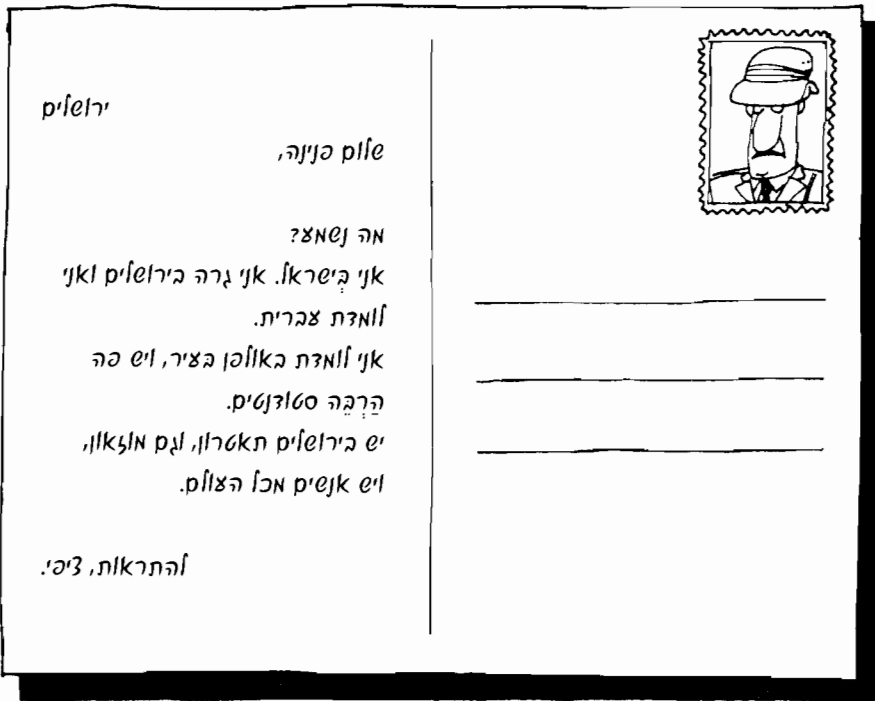 ירושלים
שלום פנינה,
מה נשמע?
אני בְּישראל. אני גרה בירושלים ואני
לומדת עברית.
אני לומדת באולפן בעיר, ויש פה
הַרְבֵּה סטודנטים.
יש בירושלים תאטרון, וגם מוזאון,
ויש אנשים מכל העולם.
להתראות, ציפי.